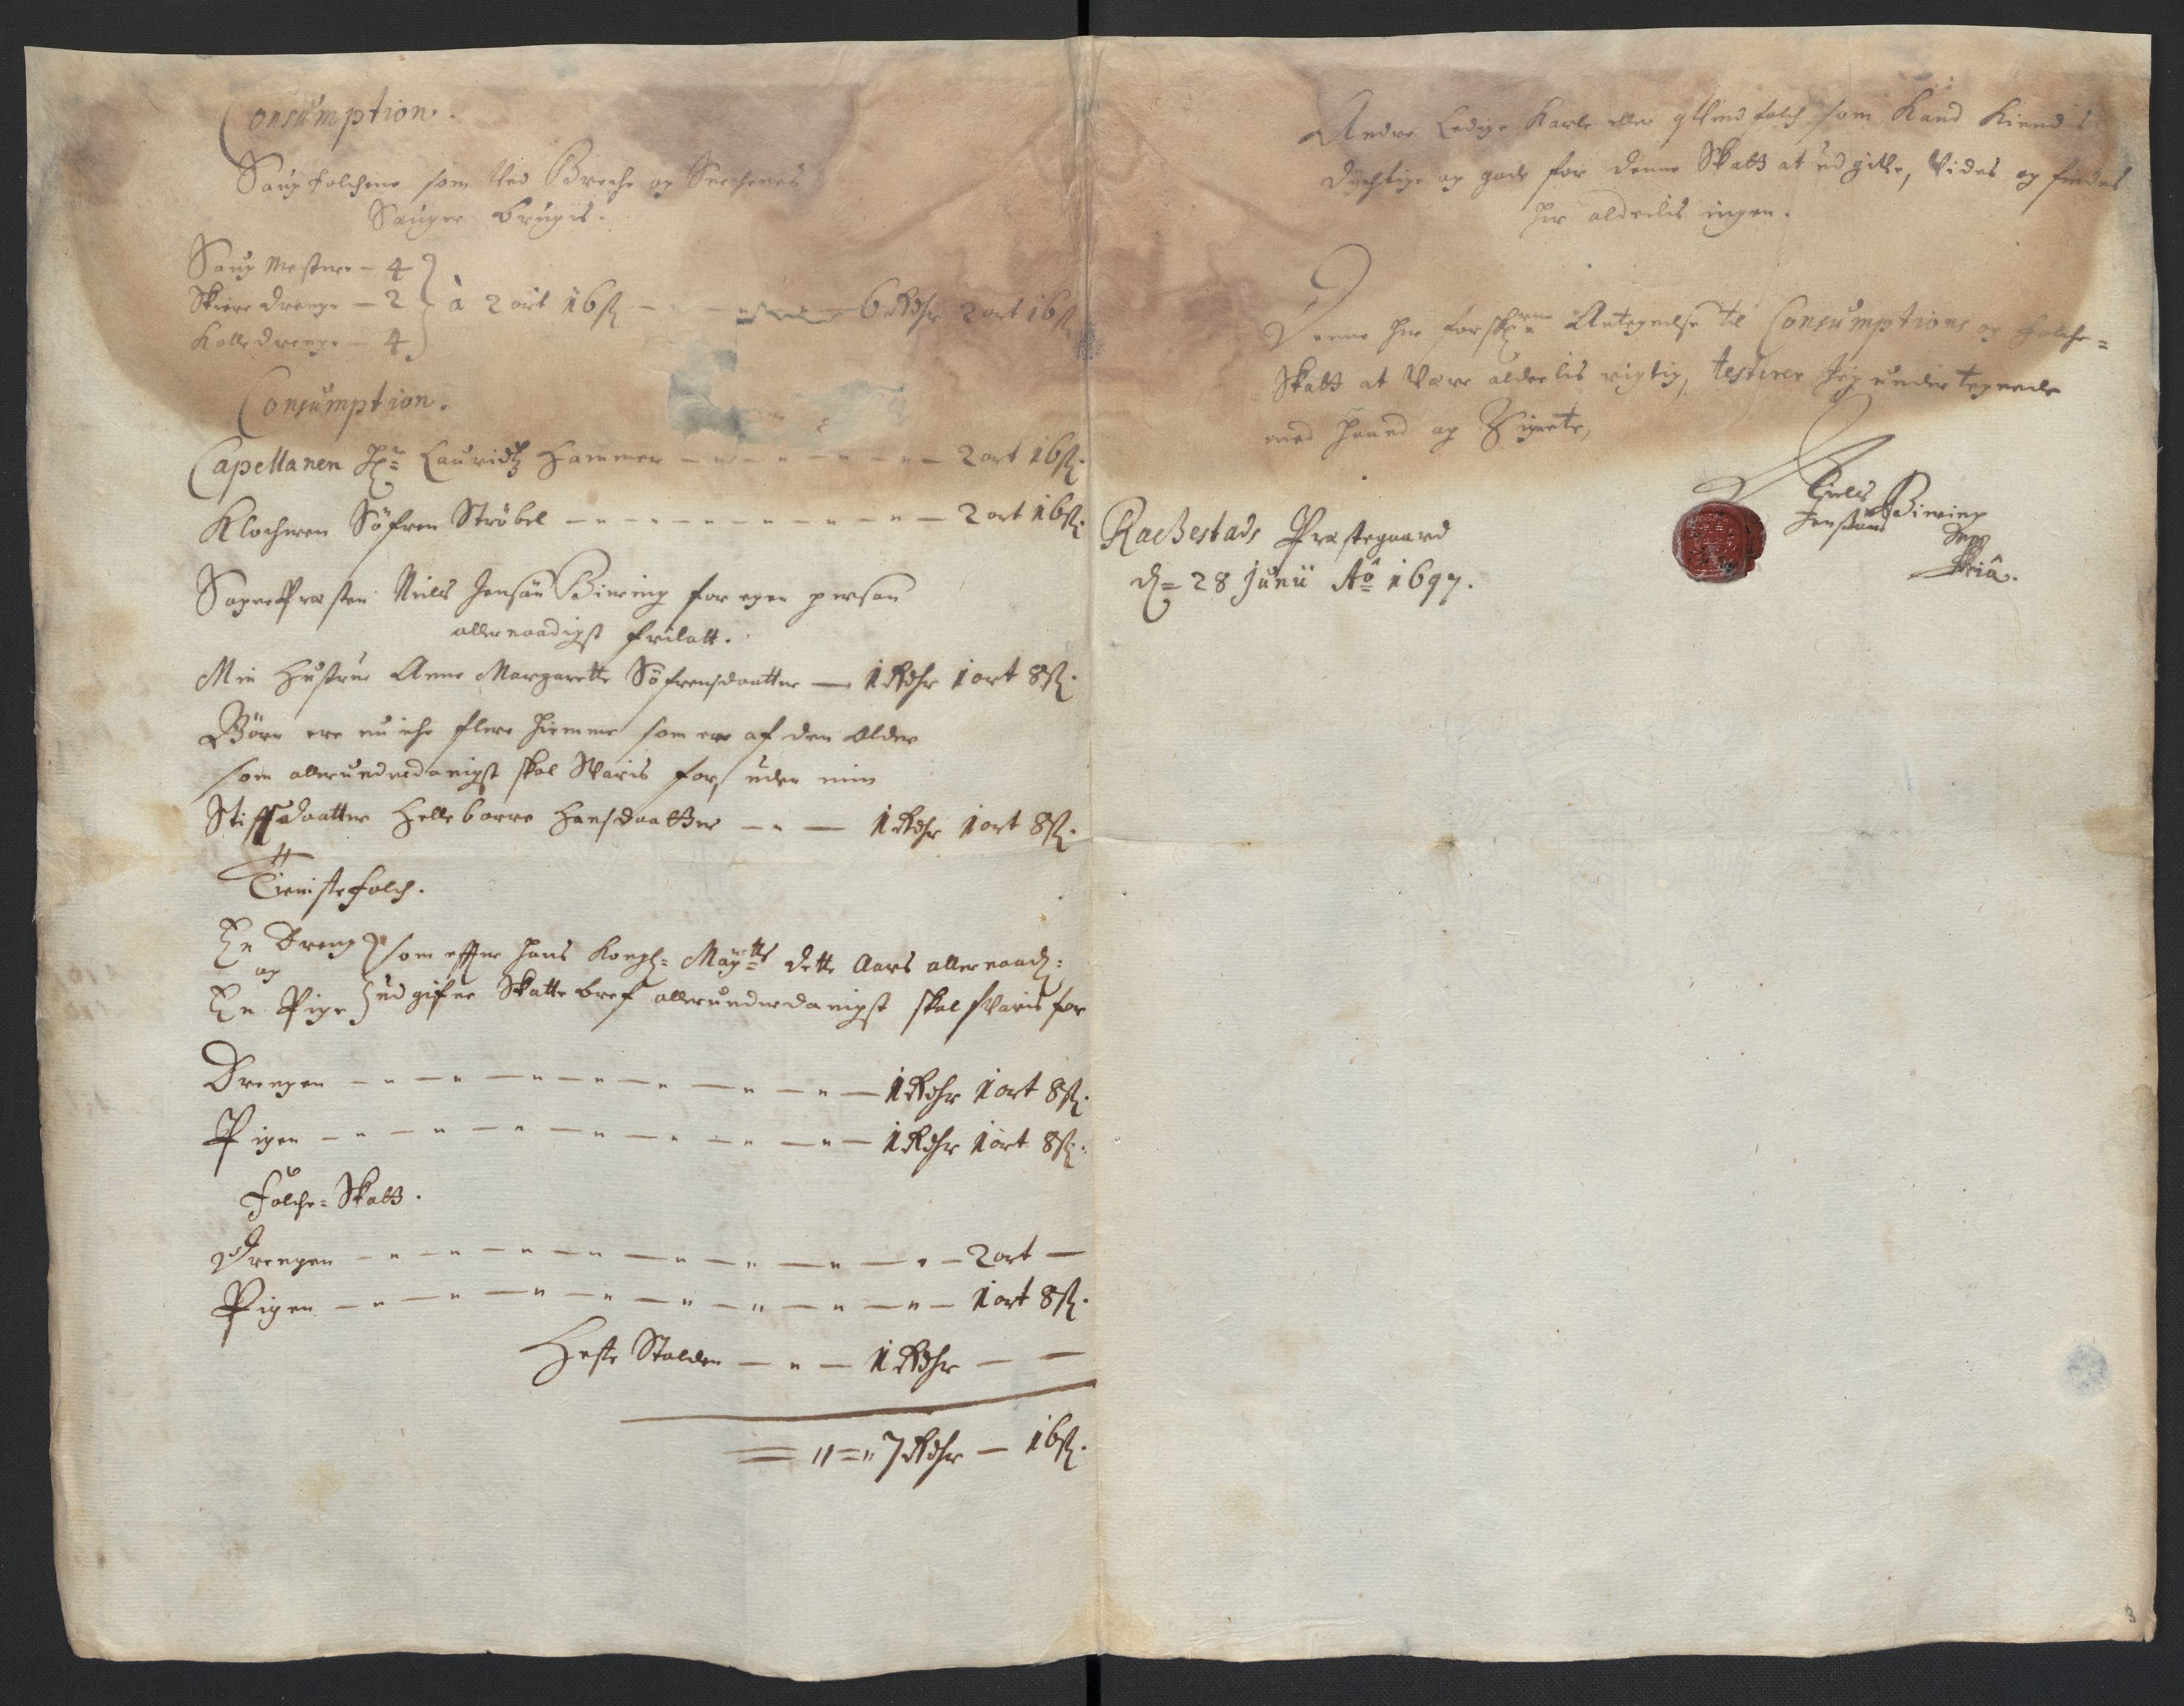 Consumption.
Saugfolchene som ved Breche og
Sauger brugis.
Saug Mestere – 4
Skiere drenge – 2 à 2 ort 16 ß – 6 Rdhr 2 ort 16 ß
Kolle drenge – 4
Consumption.
Capellanen Hr: Lauridtz Hammer – 2 ort 16 ß.
Klocheren Söfren Ströbel – 2 ort 16 ß.
Sogne Præsten Niels Jensön Biering for egen person
allernaadigst frilatt.
Min Hustrue Anne Margarette Söfrensdaatter – 1 Rdhr 1 ort 8 ß.
Börn ere nu iche flere hiemme som ere af den Alder
som allerunderdanigst skal Svaris for, uden min
Stifdaatter Hellebarre Hansdaatter – 1 Rdhr 1 ort 8 ß.
Tieniste folch.
En Dreng som effter hans Kongl: Mayts dette Aars allernaad:
og
En Pige udgifne Skatte bref allerunderdanigst skal Svaris for
Drengen – 1 Rdhr 1 ort 8 ß.
Pigen – 1 Rdhr 1 ort 8 ß.
Folche-Skatt.
Drengen – 2 ort –
Pigen – 1 ort 8 ß.
Heste Stalden – 1 Rdhr – –
7 Rdhr – 16 ß.
Andre Ledige Karle eller qvindfolch som Kand Kiendis
dychtige og gode for denne Skatt at udgifve, Vides og findes
her aldeelis ingen.
Denne her forskrne Antegnelse til Consumptions og Folche-
Skatt at Være aldeelis rigtig, testerer Jeg undertegnede
med Haand og Signete,
Rachestads Præstegaard
d= 28 Junii Ao 1697.
Niels Biering
Jensön
3